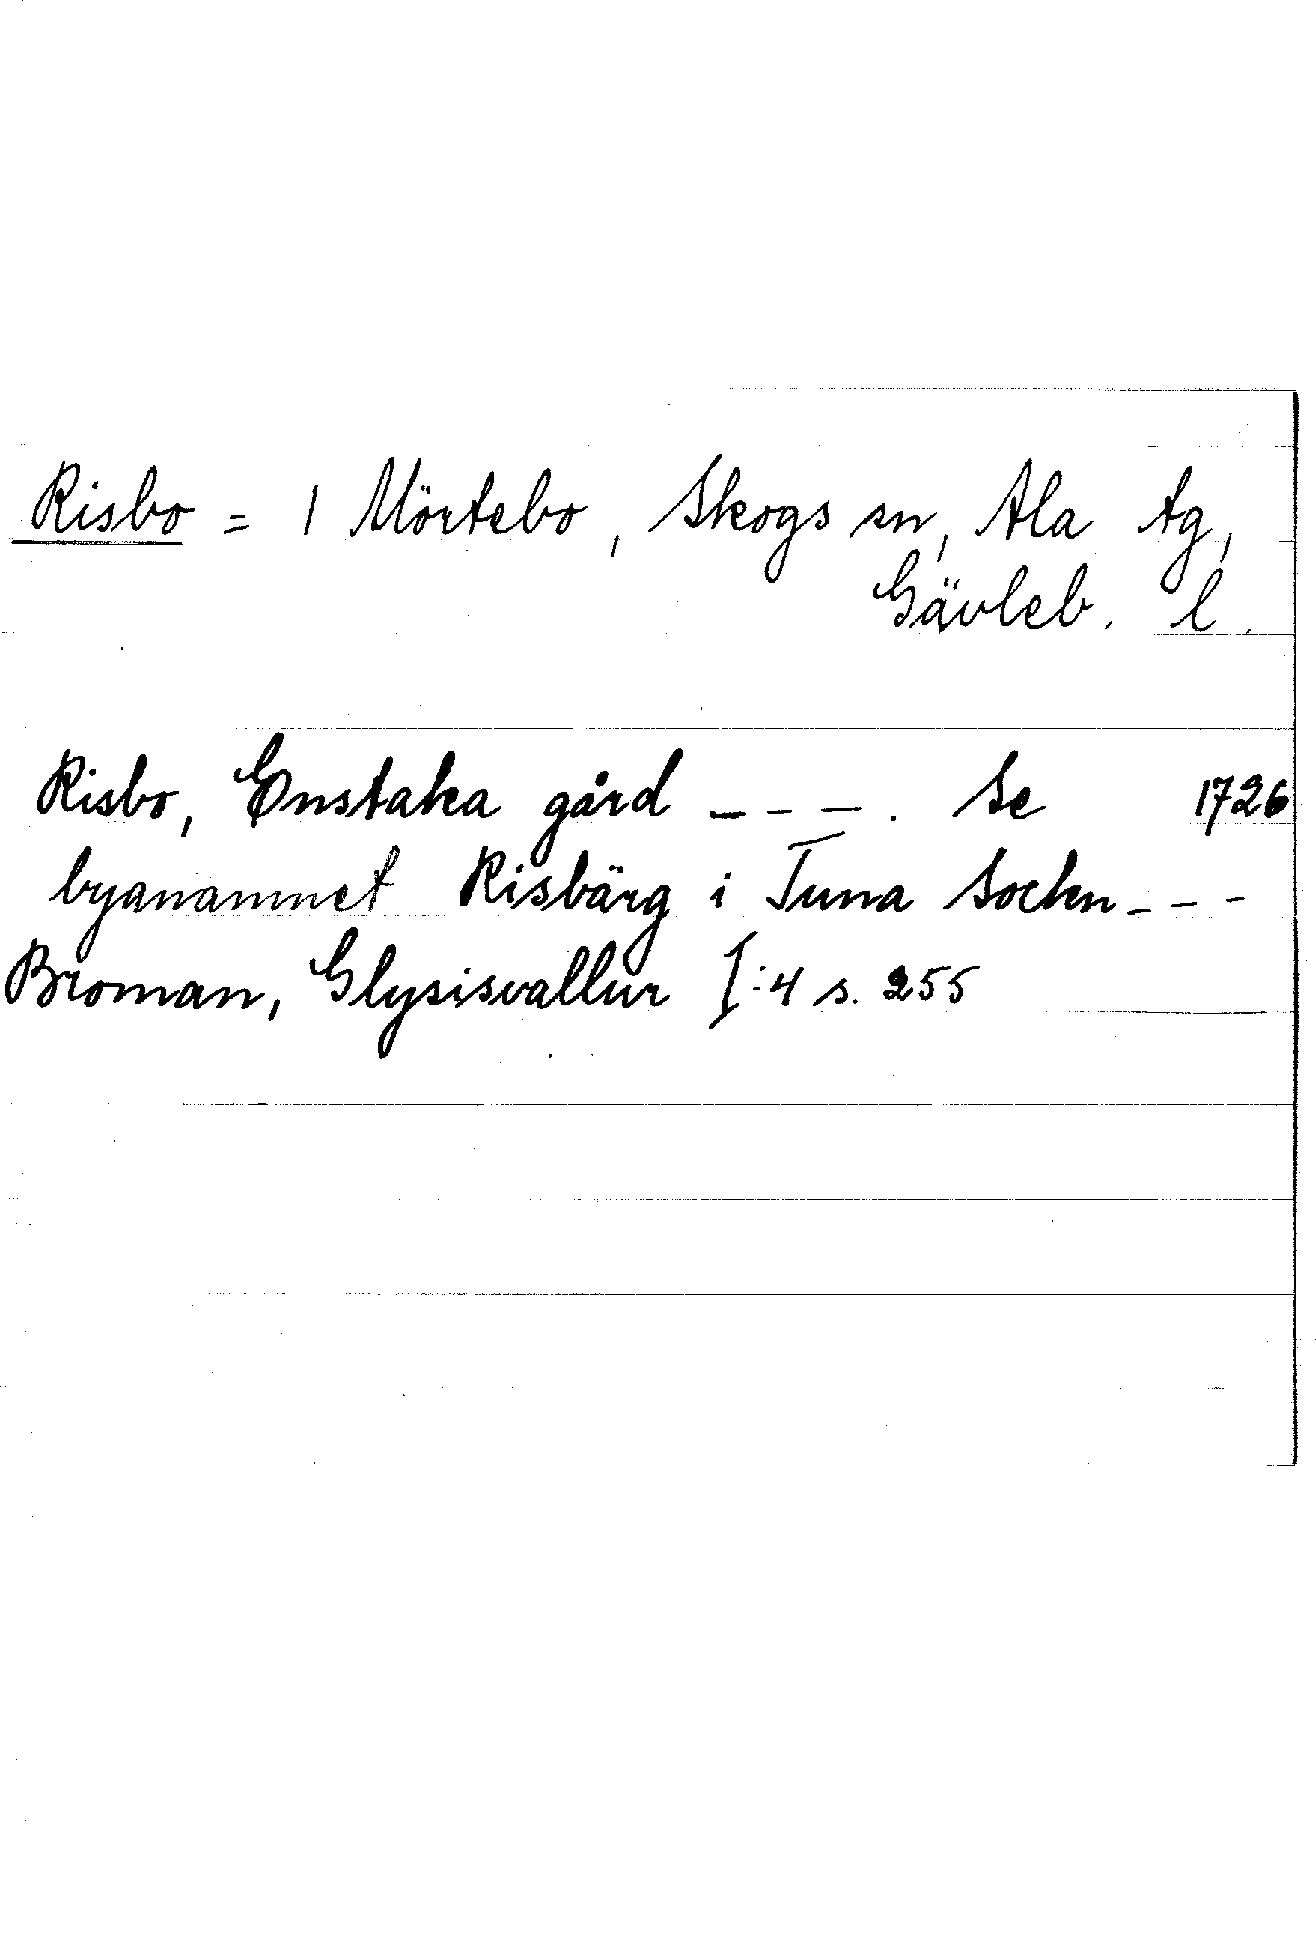 Risbo = 1 Mörtebo, Skogs sn, Ala tg,
Gävleb. l.
Risbo, Enstaka gård - - - . Se 1726
byanamnet Risbärg i Tuna Sockn - - -
Broman, Glysisvallur I:4 s. 255